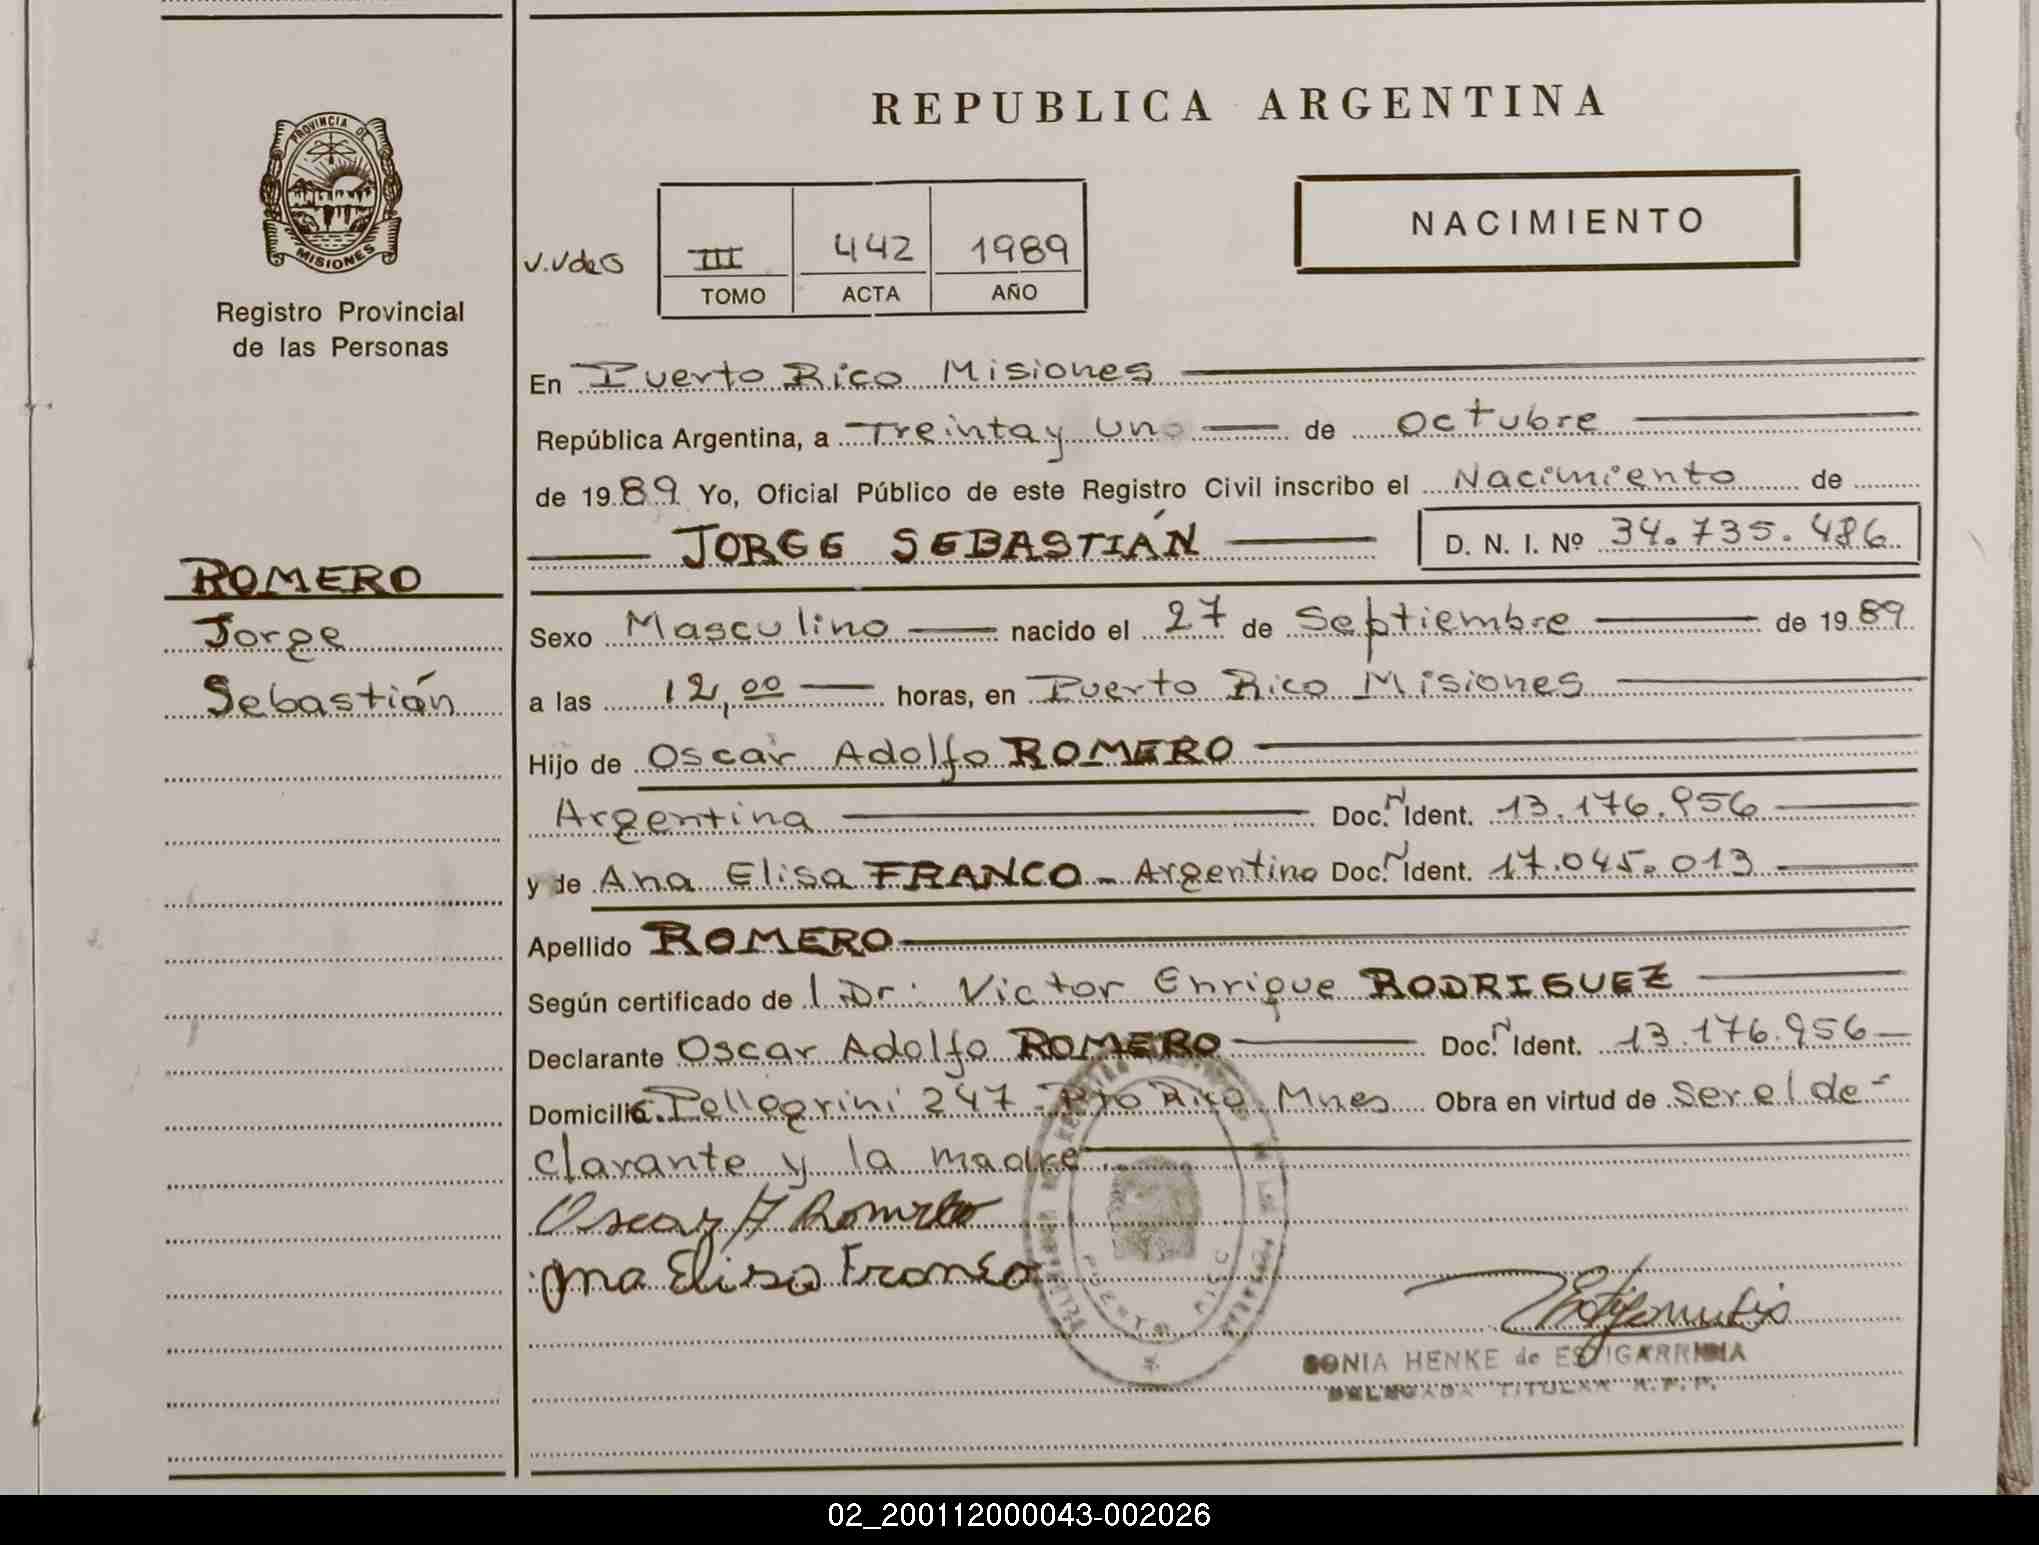 REPUBLICA ARGENTINA
PROVINCIA DE
MISIONES
Registro Provincial
de las Personas
NACIMIENTO
V.VdeS
III 442 1989
TOMO ACTA AÑO
En Puerto Rico Misiones
República Argentina, a Treinta y Uno de octubre
de 1989 Yo, Oficial Público de este Registro Civil inscribo el Nacimiento de
JORGE SEBASTIÁN D. N. I. Nº 34.735.486
ROMERO
Jorge
Sebastián
Sexo Masculino nacido el 27 de Septiembre de 1989
a las 12,00 horas, en Puerto Rico Misiones
Hijo de Oscar Adolfo ROMERO
Argentina Doc. N Ident. 13.176.956
y de Ana Elisa FRANCO - Argentina Doc. N Ident. 17.045.013
Apellido ROMERO
Según certificado de l Dr. Victor Enrique RODRIGUEZ
Declarante Oscar Adolfo ROMERO Doc. N Ident. 13.176.956
Domicilio C. Pellegrini 247 - Pto Rico Mnes Obra en virtud de Ser el de-
clarante y la madre
Oscar A Romero
Ana Elisa Franco
PUERTO RICO
SONIA HENKE de ESTIGARRIBIA
DELEGADA TITULAR R.P.P.
02_200112000043-002026